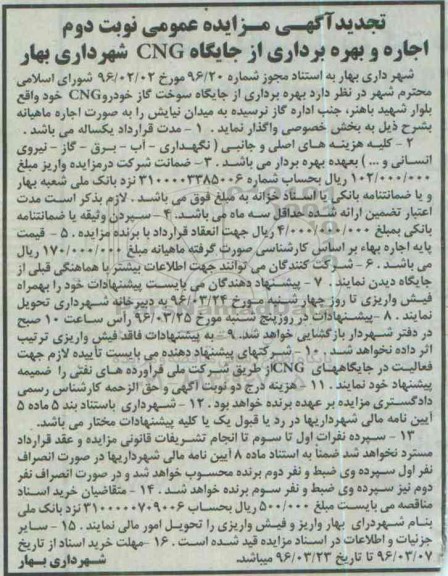 تجدیدآگهـی مـزایده عمومی نوبت دوم
اجاره و بهره برداری از جایگاه CNG شهرداری بهار
شهر داری بهار به استناد مجوز شماره ۹۶/۲۰ مورخ ۹۶/۰۲/۰۲ شورای اسلامی
محترم شهر در نظر دارد بهره برداری از جایگاه سوخت گاز خودروCNG خود واقع
بلوار شهید باهنر، جنب اداره گاز نرسیده به میدان نیایش را به صورت اجاره ماهیانه
بشرح ذیل به بخش خصوصی واگذار نماید . ۱ - مدت قرارداد یکساله می باشد .
۲ - کلیـه هزینـه هـای اصلـی و جانبـی ( نگهـداری - آب - بـرق - گـاز - نیروی
انسـانی و ... ) بعهده بهره بردار می باشـد . ۳ - ضمانت شرکت درمزایده واریز مبلغ
۱۰۲/۰۰۰/۰۰۰ ریال بحساب شماره ۳۱۰۰۰۰۳۳۸۵۰۰۶ نزد بانک ملی شعبه بهار
و یا ضمانتنامه بانکی یا اسناد خزانه به مبلغ فوق می باشـد . لازم بذکر است مدت
اعتبار تضمین ارائه شده حداقل سـه ماه می باشـد. ۴ - سـپردن وثیقه یا ضمانتنامه
بانکی بمبلغ ۴/۰۰۰/۰۰۰/۰۰۰ ریال جهت انعقاد قرارداد با برنده مزایده . ۵ - قیمت
پایه اجاره بهاء بر اساس کارشناسی صورت گرفته ماهیانه مبلغ ۱۷۰/۰۰۰/۰۰۰ ریال
می باشـد . ۶ - شـرکت کنندگان می توانند جهت اطلاعات بیشتر با هماهنگی قبلی از
جایگاه دیدن نمایند . ۷ - پیشـنهاد دهندگان می بایسـت پیشـنهادات خود را بهمراه
فیـش واریـزی تا روز چهار شـنبه مـورخ ۹۶/۰۳/۲۴ به دبیرخانه شـهرداری تحویل
نمایند . ۸ - پیشـنهادات در روزپنج شـنبه مورخ ۹۶/۰۳/۲۵ رأس سـاعت ۱۰ صبح
در دفتر شـهردار بازگشایی خواهد شـد. ۹ - به پیشنهادات فاقد فیش واریزی ترتیب
اثر داده نخواهد شـد . ۱۰ - شـرکتهای پیشـنهاد دهنده می بایسـت تأییده لازم جهت
فعالیـت در جایگاههـای CNGاز طریـق شـرکت ملی فرآورده هـای نفتی را ضمیمه
پیشنهاد خود نمایند . ۱۱ - هزینه درج دو نوبت آگهی و حق الزحمه کارشناس رسمی
دادگستری مزایده بر عهده برنده خواهد بود . ۱۲ - شـهرداری باستناد بند ۵ ماده ۵
آیین نامه مالی شهرداریها در رد یا قبول یک یا کلیه پیشنهادات مختار می باشد.
۱۳ - سـپرده نفرات اول تا سـوم تا انجام تشـریفات قانونی مزایده و عقد قرارداد
مسترد نخواهد شد ضمناً به استناد ماده ۸ آیین نامه مالی شهرداریها در صورت انصراف
نفر اول سپرده وی ضبط و نفر دوم برنده محسوب خواهد شد و در صورت انصراف نفر
دوم نیز سـپرده وی ضبط و نفر سوم برنده خواهد شـد . ۱۴ - متقاضیان خرید اسـناد
مناقصه می بایست مبلغ ۵۰۰/۰۰۰ ریال بحساب ۳۱۰۰۰۰۰۷۰۹۰۰۶ نزد بانک ملی
بنـام شـهرداری بهار واریز و فیـش واریزی را تحویـل امور مالی نمایند . ۱۵ - سـایر
جزئیات و اطلاعات در اسناد مزایده قید شده است . ۱۶ -مهلت خرید اسناد از تاریخ
۹۶/۰۳/۰۷ تا تاریخ ۹۶/۰۳/۲۳ میباشد. شهرداری بهار